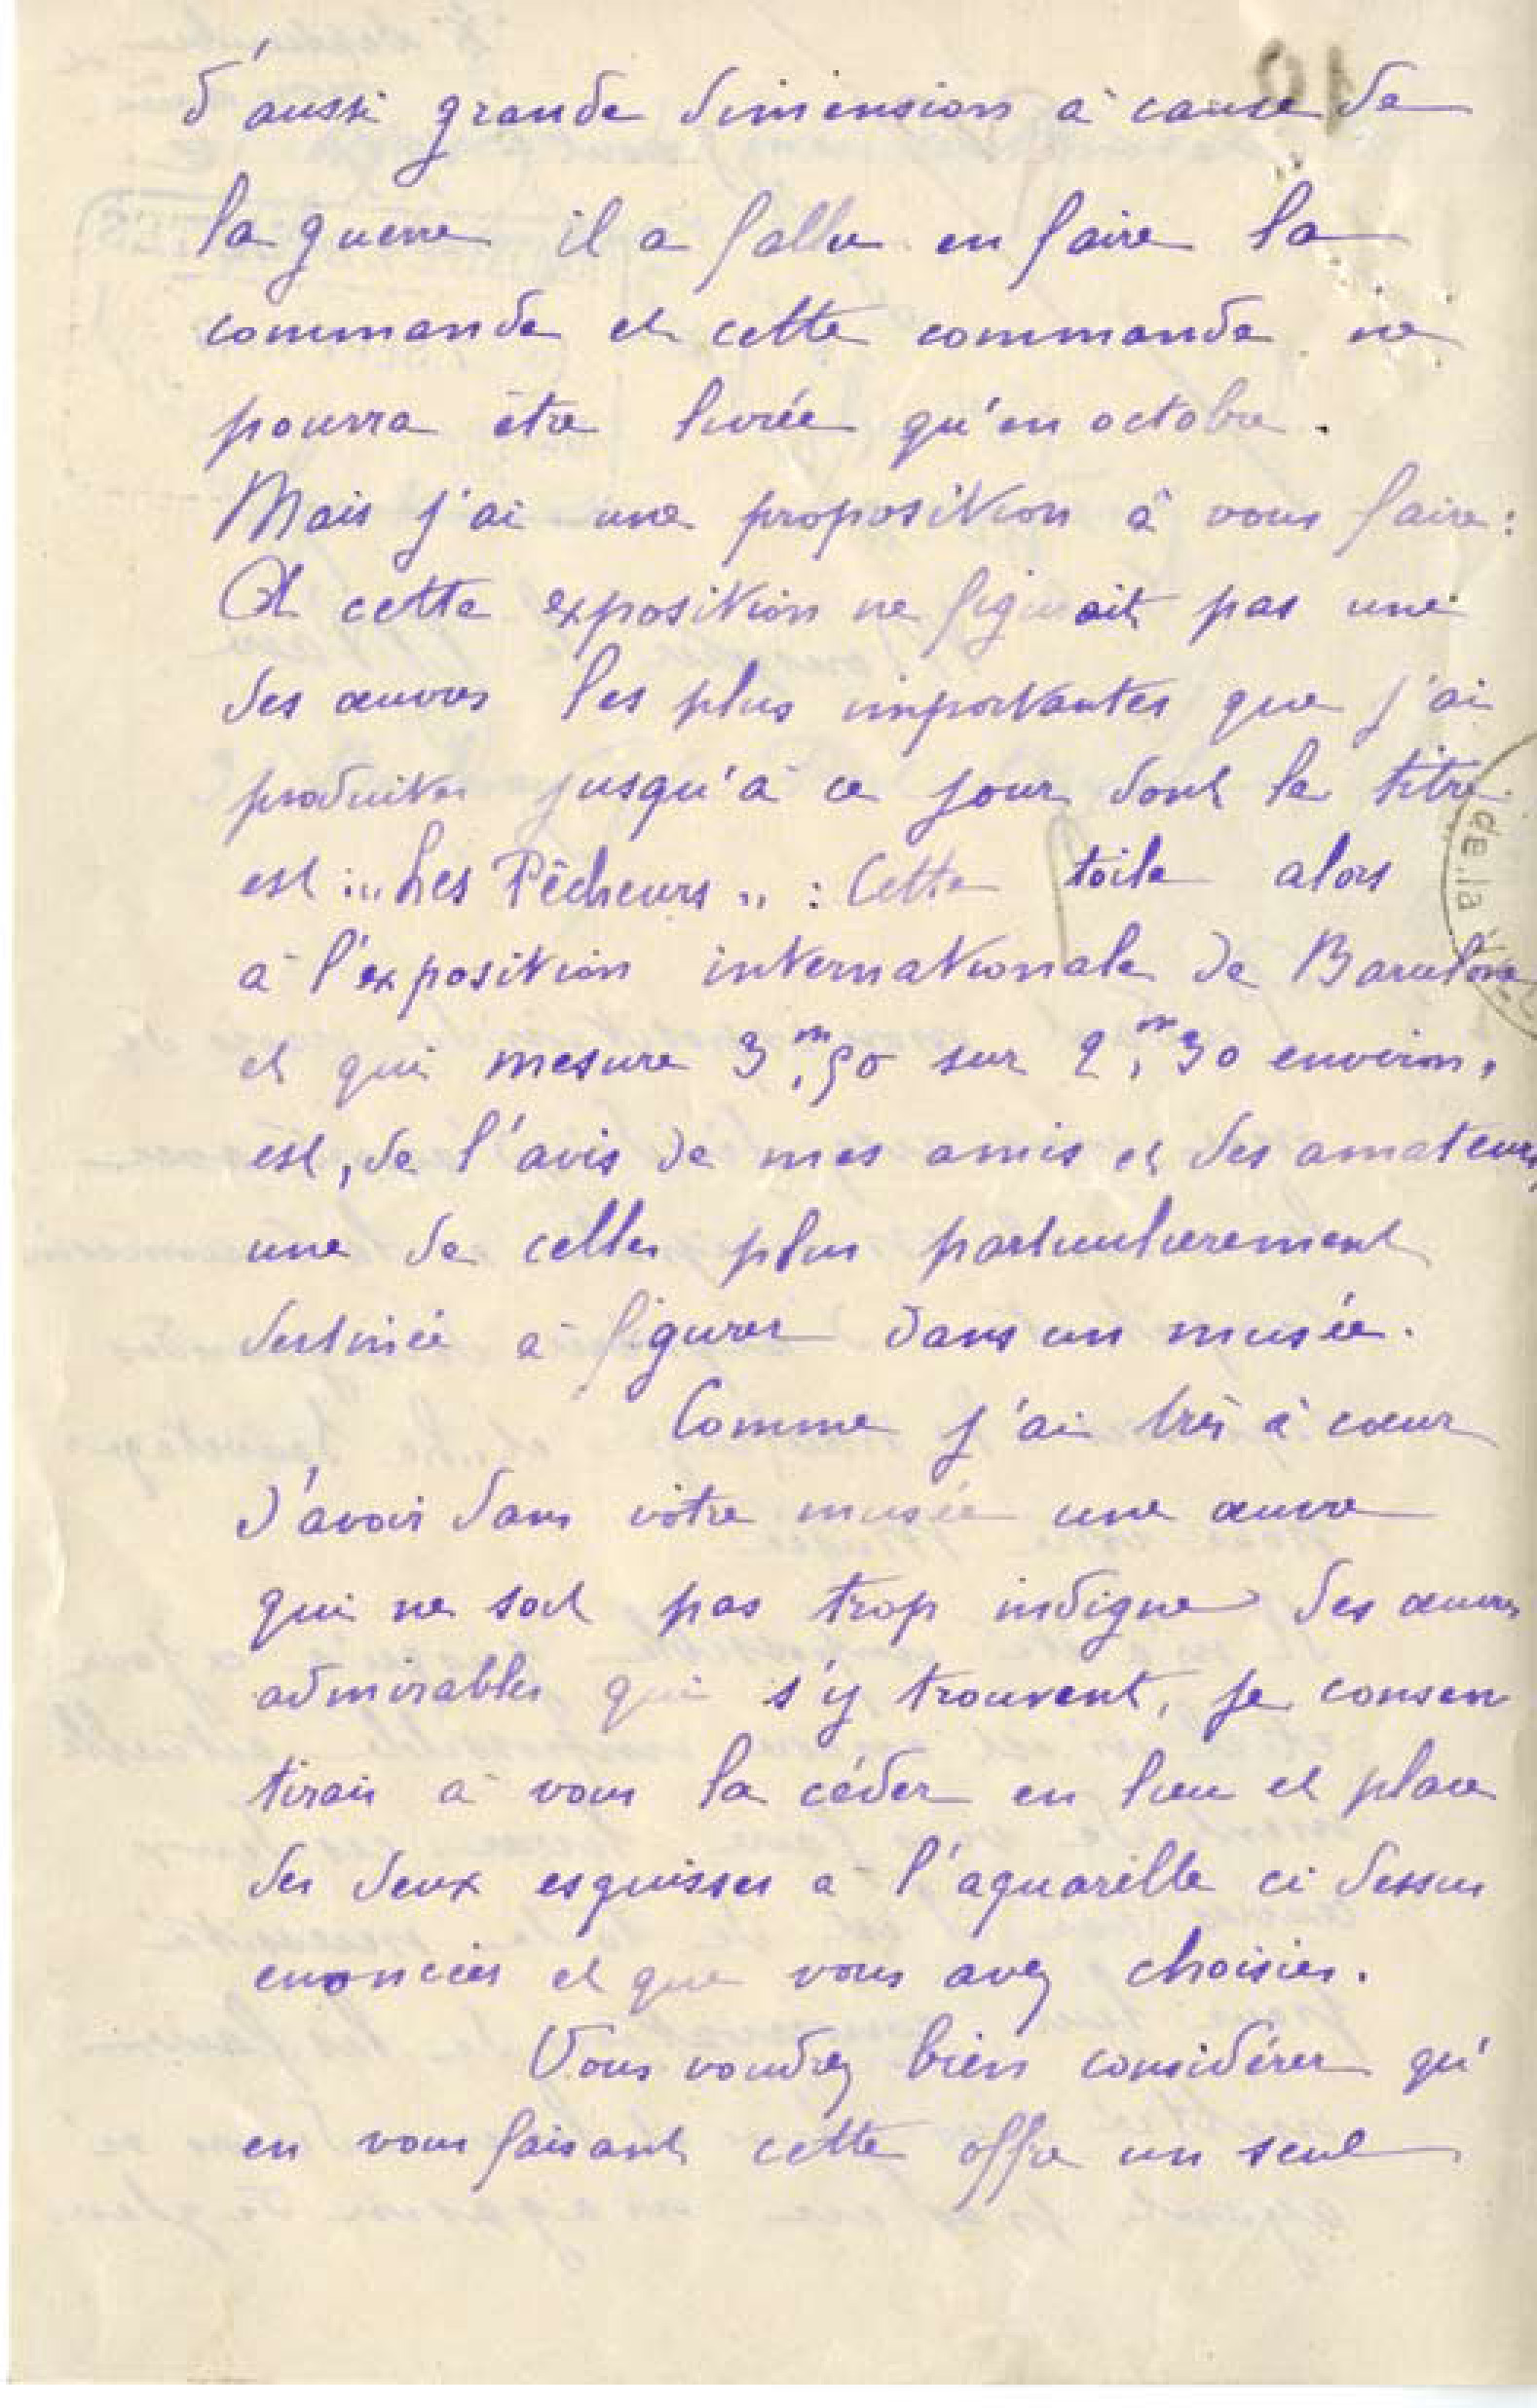 d'aussi grande dimension à cause de
la guerre il a fallu en faire la
commande et cette commande ne
pourra être livrée qu'en octobre.
Mais j'ai une proposition à vous faire :
A cette exposition ne figurait pas une
des œuvres les plus importantes que j'ai
produites jusqu'à ce jour dont le titre
est : „ Les Pêcheurs „ : Cette toile alors
à l'exposition internationale de Barcelone
et qui mesure 3,m50 sur 2,m30 environ,
est, de l'avis de mes amis et des amateurs,
une de celles plus particulièrement
destinée à figurer dans un musée.
Comme j'ai très à cœur
d'avoir dans votre musée une œuvre
qui ne soit pas trop indigne des œuvres
admirables qui s'y trouvent, je consen
tirais à vous la céder en lieu et place
des deux esquisses à l'aquarelle ci dessus
enoncées et que vous avez choisies.
Vous voudrez bien considérer qu'
en vous faisant cette offre un seul
de la